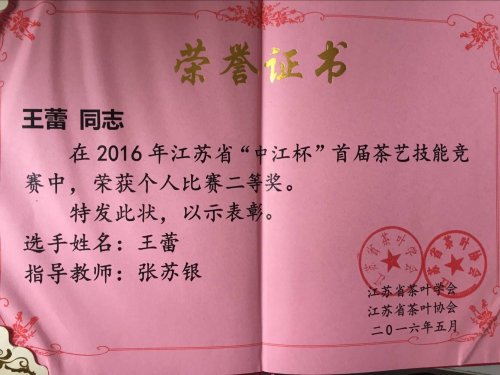 荣誉证书
王蕾 同志
在2016年江苏省“中江杯”首届茶艺技能竞
赛中，荣获个人比赛二等奖。
特发此状，以示表彰。
选手姓名：王蕾
指导教师：张苏银
江苏省茶叶学会
江苏省茶叶协会
江苏省茶叶学会
江苏省茶叶协会
二〇一六年五月